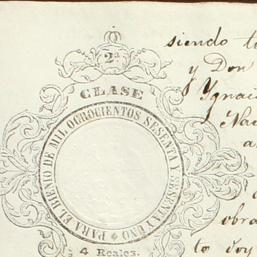 2ª
CLASE
PARA EL BIENIO DE MIL OCHOCIENTOS SESENTA Y SESENTA Y UNO
4 Reales.
siendo
y Don
Ygnaci
Nac
a
obra
to doy